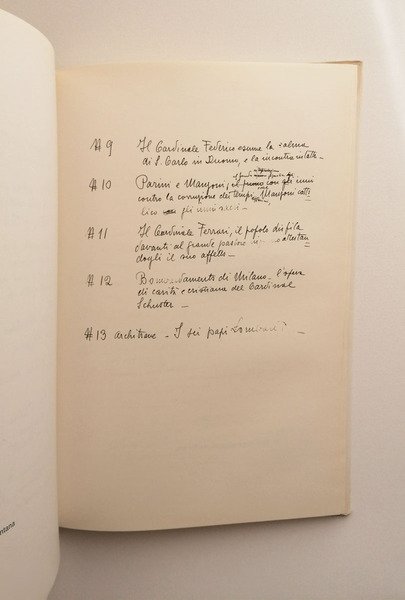 # 9 Il Cardinale Federico esume la salma
di S. Carlo in Duomo, e la incontra
# 10 Parini e Manzoni,
contro la corruzione dei tempi, Manzoni catto
lico gli inni sacri -
# 11 Il Cardinale Ferrari, il popolo sfila
davanti al grande pastore attestan
dogli il suo affetto -
# 12 Bombardamento di Milano - l'opera
di carità e cristiana del Cardinal
Schuster -
# 13 architrave - I sei papi Lombardi -
ntana